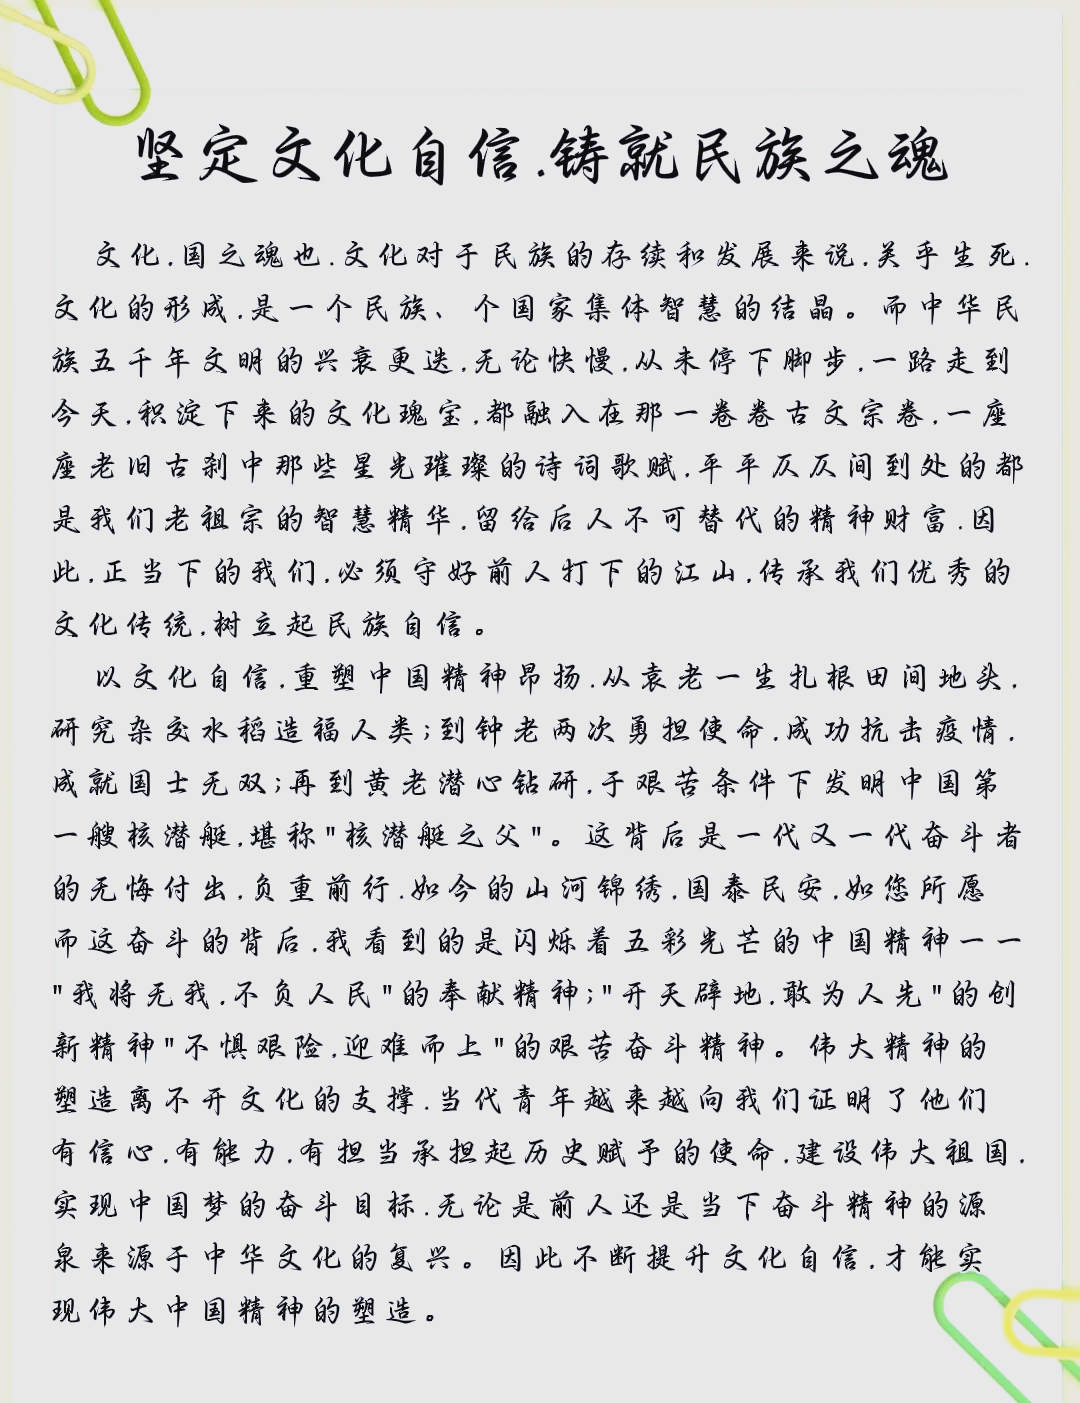 坚定文化自信.铸就民族之魂
文化.国之魂也.文化对于民族的存续和发展来说.关乎生死.
文化的形成.是一个民族、个国家集体智慧的结晶。而中华民
族五千年文明的兴衰更迭.无论快慢.从未停下脚步.一路走到
今天.积淀下来的文化瑰宝.都融入在那一卷卷古文宗卷.一座
座老旧古刹中那些星光璀璨的诗词歌赋.平平仄仄间到处的都
是我们老祖宗的智慧精华.留给后人不可替代的精神财富.因
此.正当下的我们.必须守好前人打下的江山.传承我们优秀的
文化传统.树立起民族自信。
以文化自信.重塑中国精神昂扬.从袁老一生扎根田间地头.
研究杂交水稻造福人类;到钟老两次勇担使命.成功抗击疫情.
成就国士无双;再到黄老潜心钻研.于艰苦条件下发明中国第
一艘核潜艇.堪称"核潜艇之父"。这背后是一代又一代奋斗者
的无悔付出.负重前行.如今的山河锦绣.国泰民安.如您所愿
而这奋斗的背后.我看到的是闪烁着五彩光芒的中国精神一一
"我将无我.不负人民"的奉献精神;"开天辟地.敢为人先"的创
新精神"不惧艰险.迎难而上"的艰苦奋斗精神。伟大精神的
塑造离不开文化的支撑.当代青年越来越向我们证明了他们
有信心.有能力.有担当承担起历史赋予的使命.建设伟大祖国.
实现中国梦的奋斗目标.无论是前人还是当下奋斗精神的源
泉来源于中华文化的复兴。因此不断提升文化自信.才能实
现伟大中国精神的塑造。